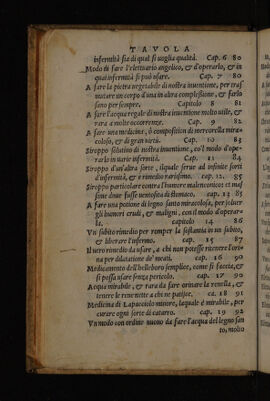 TAVOLA
infermità sia di qual si voglia qualità. Cap. 6 80
Modo di fare l'elettuario angelico, & d'operarlo, & in
quai infermità si può usare. Cap. 7 80
A fare la pietra vegetabile di nostra inventione, per tras
mutare un corpo d'una in altra complessione, & farlo
sano per sempre. Capitolo 8 81
A fare l'acqua regale di nostra inventione molto utile, &
rara a molte occorrenze. Cap. 9 81
A fare una medicina, ò composition di mercorella mira
colosa, & di gran virtù. cap. 10 83
Siroppo solutivo di nostra inventione, co'l modo d'oper
arlo in varie infermità. Cap. 11 84
Siroppo d'un'altra sorte, ilquale serve ad infinite sorti
d'infermità, & è rimedio rarissimo. cap. 12. 85
Siroppo particolare contra l'humore malenconico: et mas
sime dove fusse ventosità di stomaco. cap. 13 85
A fare una potione di legno santo miracolosa, per solver
gli humori crudi, & maligni, con il modo d'opera-
rle. capitolo 14 86
Un subito rimedio per romper la flemma in un subito,
& liberare l'infermo. cap. 15 87
Il vero rimedio da usare, a chi non potesse ritenere l'ori-
na per dilatatione de' meati. cap. 16 90
Medicamento dell'helleboro semplice, come si faccia, &
si possa usare senza pericolo. cap. 17 90
Acqua mirabile, & rara da fare orinare la renella, &
tenere le reni nette a chi ne patisce. ca. 18 91
Medicina di Lapacciolo minore, laquale è mirabile, per
curare ogni sorte di catarro. cap. 19 92
Un modo con ordine nuovo da fare l'acqua del legno san
to, molto